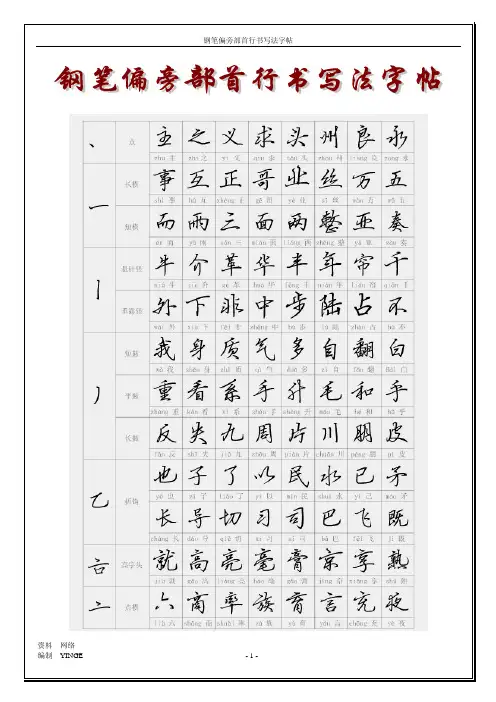 钢笔偏旁部首行书写法字帖
钢笔偏旁部首行书写法字帖
丶 点 主 之 义 求 头 州 良 永
zhǔ 主 zhī 之 yì 义 qiú 求 tóu 头 zhōu 州 liáng 良 yǒng 永
一 长横 事 互 正 哥 业 丝 万 五
shì 事 hù 互 zhèng 正 gē 哥 yè 业 sī 丝 wàn 万 wǔ 五
短横 而 雨 三 面 两 整 亚 奏
ér 而 yǔ 雨 sān 三 miàn 面 liǎng 两 zhěng 整 yà 亚 zòu 奏
丨 悬针竖 牛 介 革 华 丰 年 帘 千
niú 牛 jiè 介 gé 革 huá 华 fēng 丰 nián 年 lián 帘 qiān 千
垂露竖 外 下 非 中 步 陆 占 不
wài 外 xià 下 fēi 非 zhōng 中 bù 步 lù 陆 zhàn 占 bù 不
丿 短撇 我 身 质 气 多 自 翻 白
wǒ 我 shēn 身 zhì 质 qì 气 duō 多 zì 自 fān 翻 bái 白
平撇 重 看 系 手 升 毛 和 乎
zhòng 重 kàn 看 xì 系 shǒu 手 shēng 升 máo 毛 hé 和 hū 乎
长撇 反 失 九 周 片 川 朋 皮
fǎn 反 shī 失 jiǔ 九 zhōu 周 piàn 片 chuān 川 péng 朋 pí 皮
乙 折钩 也 子 了 以 民 水 已 矛
yě 也 zǐ 子 liǎo 了 yǐ 以 mín 民 shuǐ 水 yǐ 已 máo 矛
长 导 切 习 司 巴 飞 既
cháng 长 dǎo 导 qiē 切 xí 习 sī 司 bā 巴 fēi 飞 jì 既
高字头 就 高 亮 毫 膏 京 享 熟
jiù 就 gāo 高 liàng 亮 háo 毫 gāo 膏 jīng 京 xiǎng 享 shú 熟
亠 点横 六 商 率 族 育 言 充 夜
liù 六 shāng 商 shuài 率 zú 族 yù 育 yán 言 chōng 充 yè 夜
资料 网络
编制 YINGE - 1 -